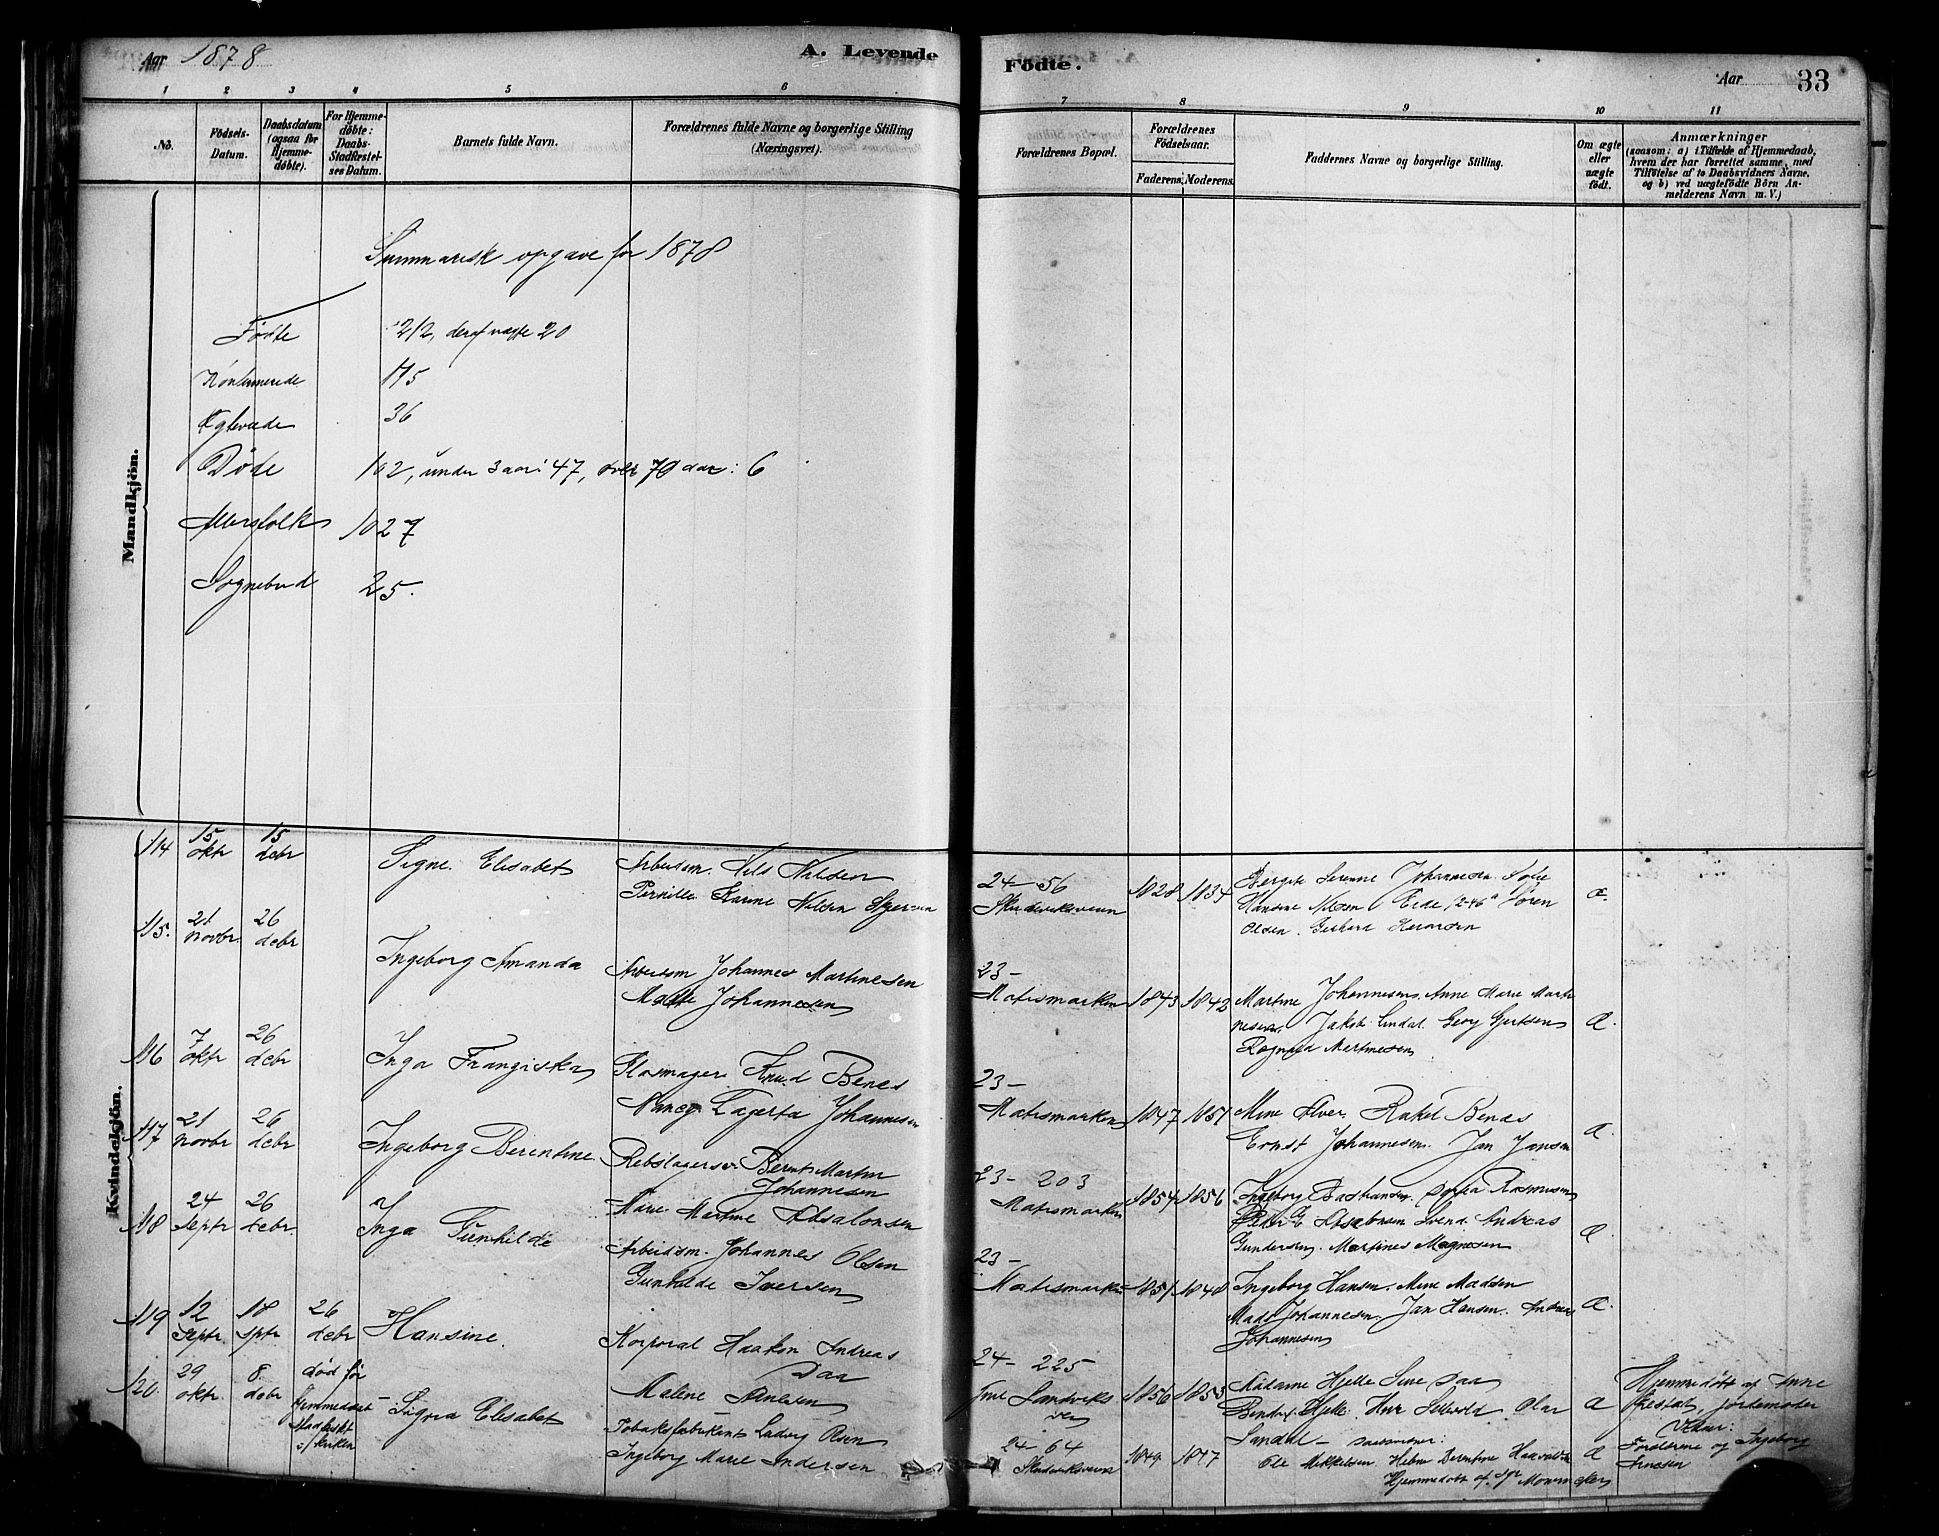 Aar 1878
A. Levende
Födte.
Aar 33
1 2 3 4 5 6 7 8 9 10 11
No.
Födsels-
Datum.
Daabsdatum
(ogsaa for
Hjemme-
døbte).
For Hjemme-
døbte:
Daabs-
Stadfæstel-
ses Datum.
Barnets fulde Navn.
Forældrenes fulde Navne og borgerlige Stilling
(Næringsvei).
Forældrenes Bopæl.
Forældrenes
Födselsaar.
Faderens. Moderens.
Faddernes Navne og borgerlige Stilling.
Om ægte
eller
uægte
født.
Anmærkninger
(saasom: a) i Tilfælde af Hjemmedaab,
hvem der har forrettet samme, med
Tilföielse af to Daabsvidners Navne,
og b) ved uægtefödte Börn An-
melderens Navn m. V.)
Mandkjön.
Summarisk opgave for 1878
Fødte 212, deraf uægte 20
Konfirmerede 115
Ægteviede 36
Døde 102, under 3 aar: 47, over 70 aar: 6
Altersfolk 1027
Sognebud 25.
Kvindekjön.
114 15 oktr 15 debr Signe Elisabet Arbeidsm. Nils Nilsen
Pernille Karine Nilsen
24-56 1828 1834
Olsen. Gerhard
æ.
115. 21 novbr. 26 debr Ingeborg Amanda Arbeidsm Johannes Martinesen
Malle Johannesen
23-
Møhlsmarken 1843 1842 Martine Johannesen. Anne Marie Marti-
nesen. Jakob Lindal. Georg Gjertsen
Ragna Martinesen
Æ.
116 7 oktr 26 debr Inga Frangiska Knud Benes
Nancy Tagerta Johannesen
23-
1847 1851 Mine Alver. Rakel Benes
Ernst Johannesen. Jan Jansen
Æ.
117 21 novbr 26 debr Ingeborg Berentine Rebslagersv. Bernt Martin
Johannesen
Marie Martine Absalonsen
23-203
1854 1856 Ingeborg Sofia Rasmusen
Peter E Absalonsen Svend Andreas
Gundersen. Martines Magnesen
Æ.
118 24 Septr 26 debr. Inga Gunhilde Arbeidsm. Johannes Olsen
Gunhilde Iversen
23-
1851 1848 Ingeborg Hansen. Mine Madsen
Mads Johannesen. Jan Hansen. Andreas
Johannesen
æ.
119 12 Septr. 18 sptr 26 debr Hansine. Korporal Haakon Andreas
Daa
Malene Arnesen
24-225
Sandviks
vei 1856 1853 Madame Hjelle Sine Daa
Hjelle. Olai
Sandal
Æ
Hjemmedøbt af Anne
jordemoder
Vidner:
Forældrene og Ingeborg
Arnesen
120. 29 oktr. 8. debr død før
Hjemmedaab
Stadfæst
i/ kirken
Signa Elisabet Tobaksfabrikant Ludvig Olsen
Ingeborg Marie Andersen
24-64
1849 1847 Ole Mikkelsen
Hjemmedøbt af
Æ